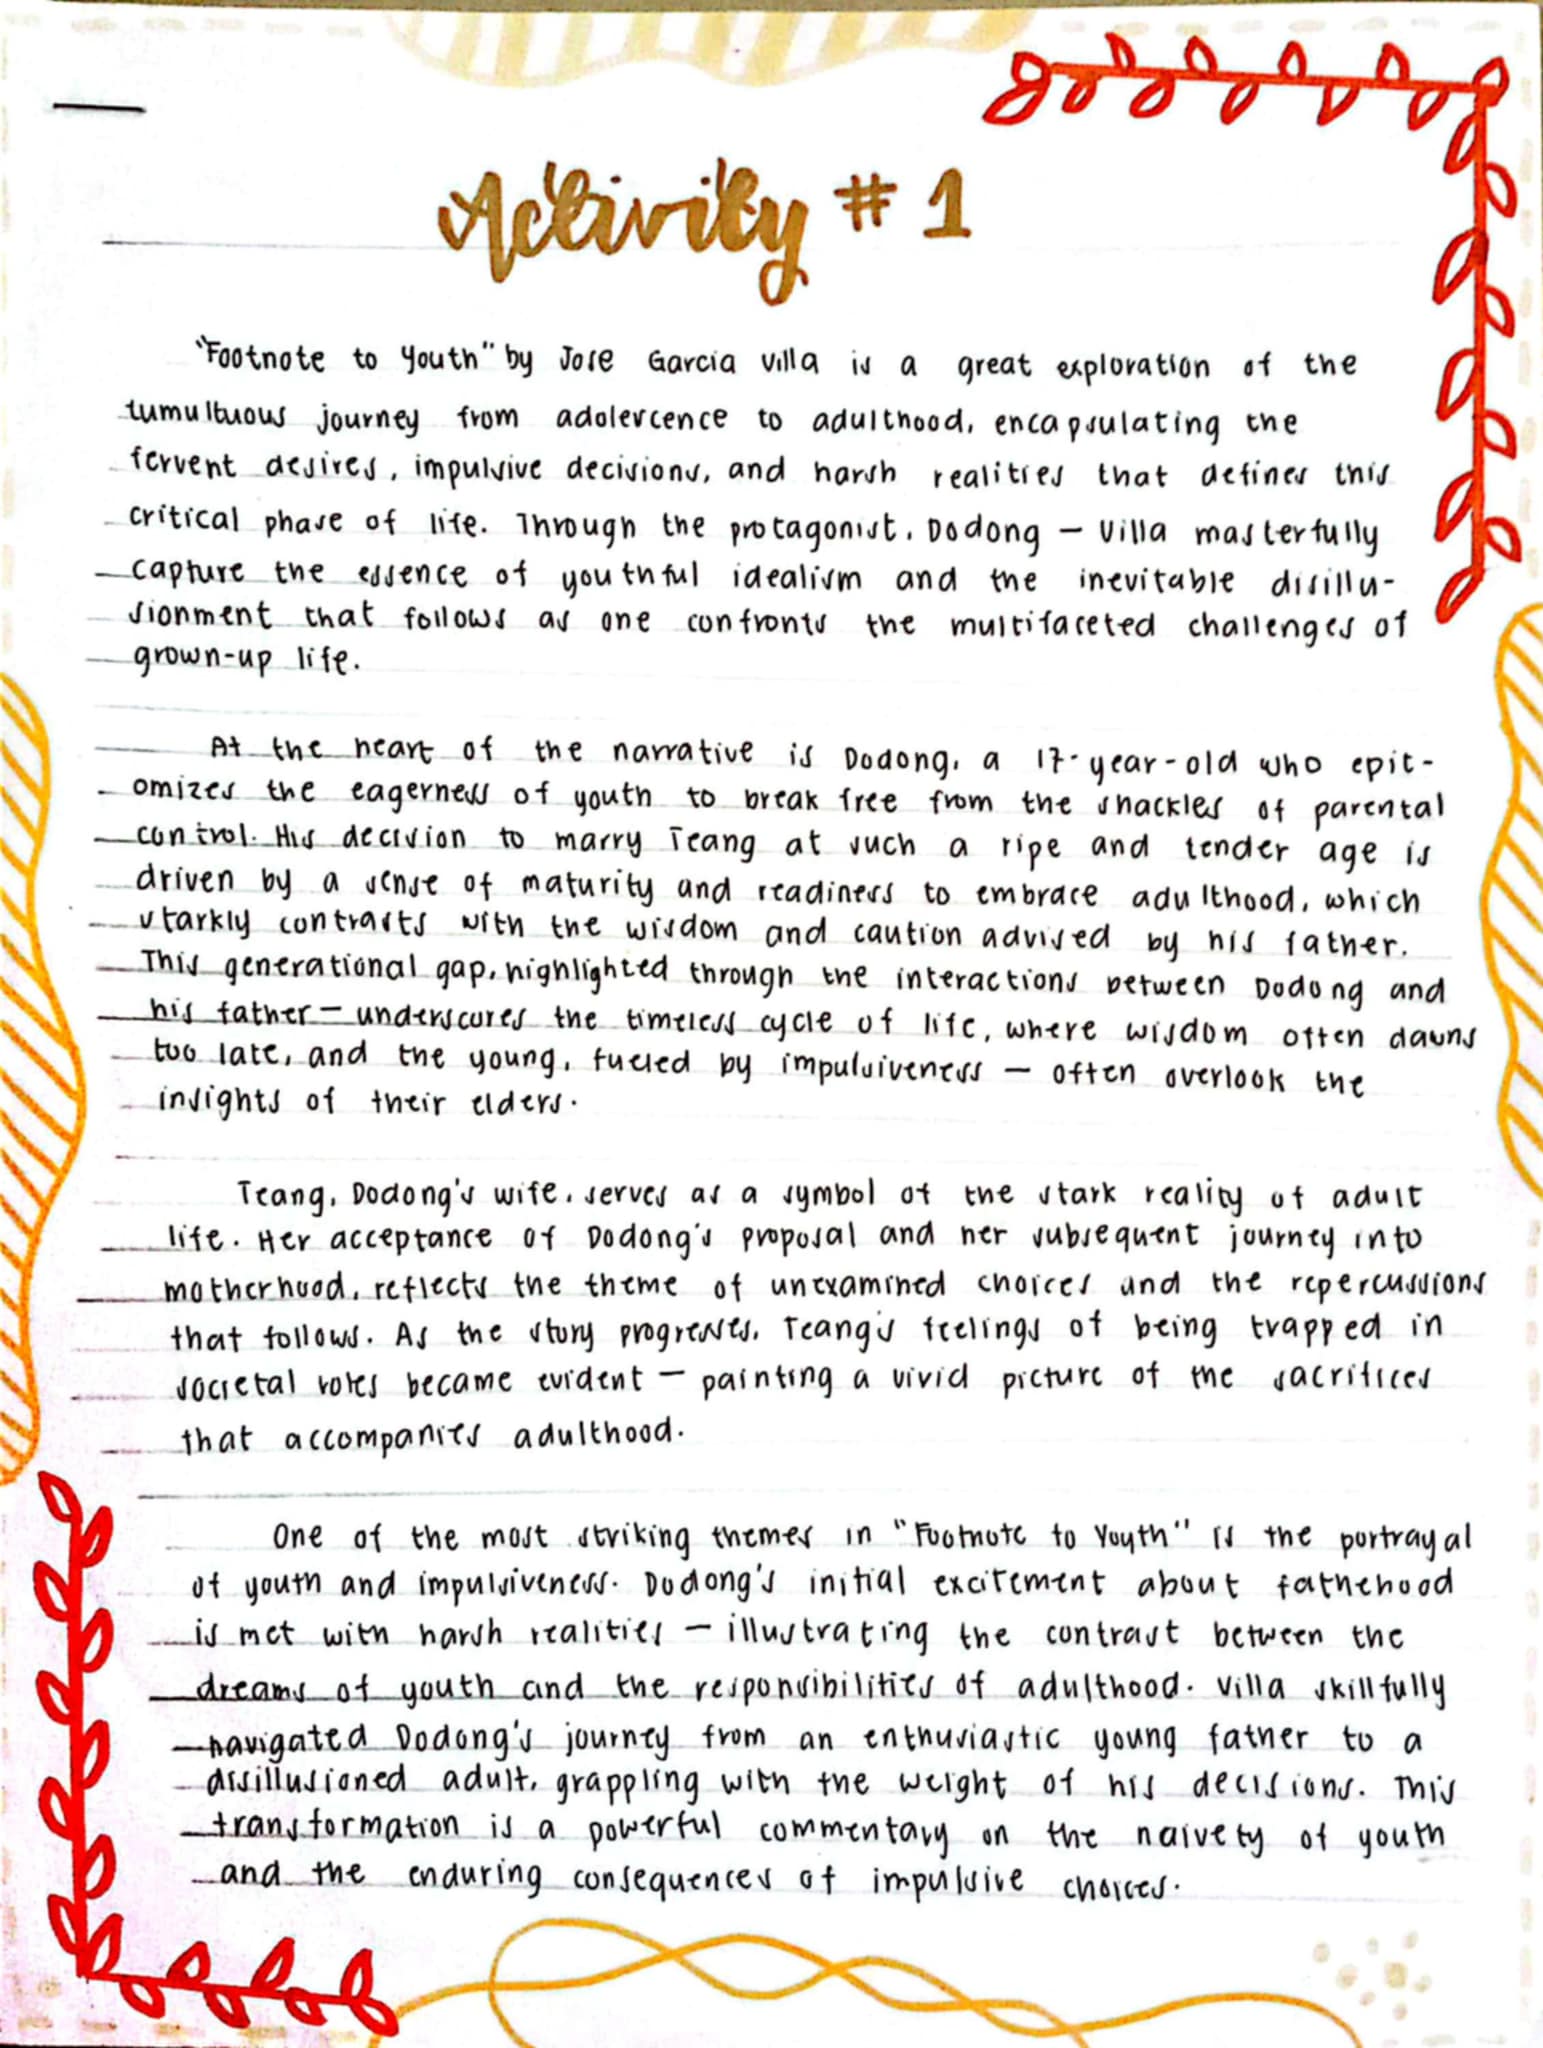 Activity # 1
"Footnote to Youth" by Jose Garcia Villa is a great exploration of the
tumultuous journey from adolescence to adulthood, encapsulating the
fervent desires, impulsive decisions, and harsh realities that defines this
critical phase of life. Through the protagonist, Dodong — Villa masterfully
capture the essence of youthful idealism and the inevitable disillu-
sionment that follows as one confronts the multifaceted challenges of
grown-up life.
At the heart of the narrative is Dodong, a 17-year-old who epit-
omizes the eagerness of youth to break free from the shackles of parental
control. His decision to marry Teang at such a ripe and tender age is
driven by a sense of maturity and readiness to embrace adulthood, which
starkly contrasts with the wisdom and caution advised by his father.
This generational gap, highlighted through the interactions between Dodong and
his father — underscores the timeless cycle of life, where wisdom often dawns
too late, and the young, fueled by impulsiveness — often overlook the
insights of their elders.
Teang, Dodong's wife, serves as a symbol of the stark reality of adult
life. Her acceptance of Dodong's proposal and her subsequent journey into
motherhood, reflects the theme of unexamined choices and the repercussions
that follows. As the story progresses, Teang's feelings of being trapped in
societal roles became evident — painting a vivid picture of the sacrifices
that accompanies adulthood.
One of the most striking themes in "Footnote to Youth" is the portrayal
of youth and impulsiveness. Dodong's initial excitement about fathehood
is met with harsh realities — illustrating the contrast between the
dreams of youth and the responsibilities of adulthood. Villa skillfully
navigated Dodong's journey from an enthusiastic young father to a
disillusioned adult, grappling with the weight of his decisions. This
transformation is a powerful commentary on the naivety of youth
and the enduring consequences of impulsive choices.